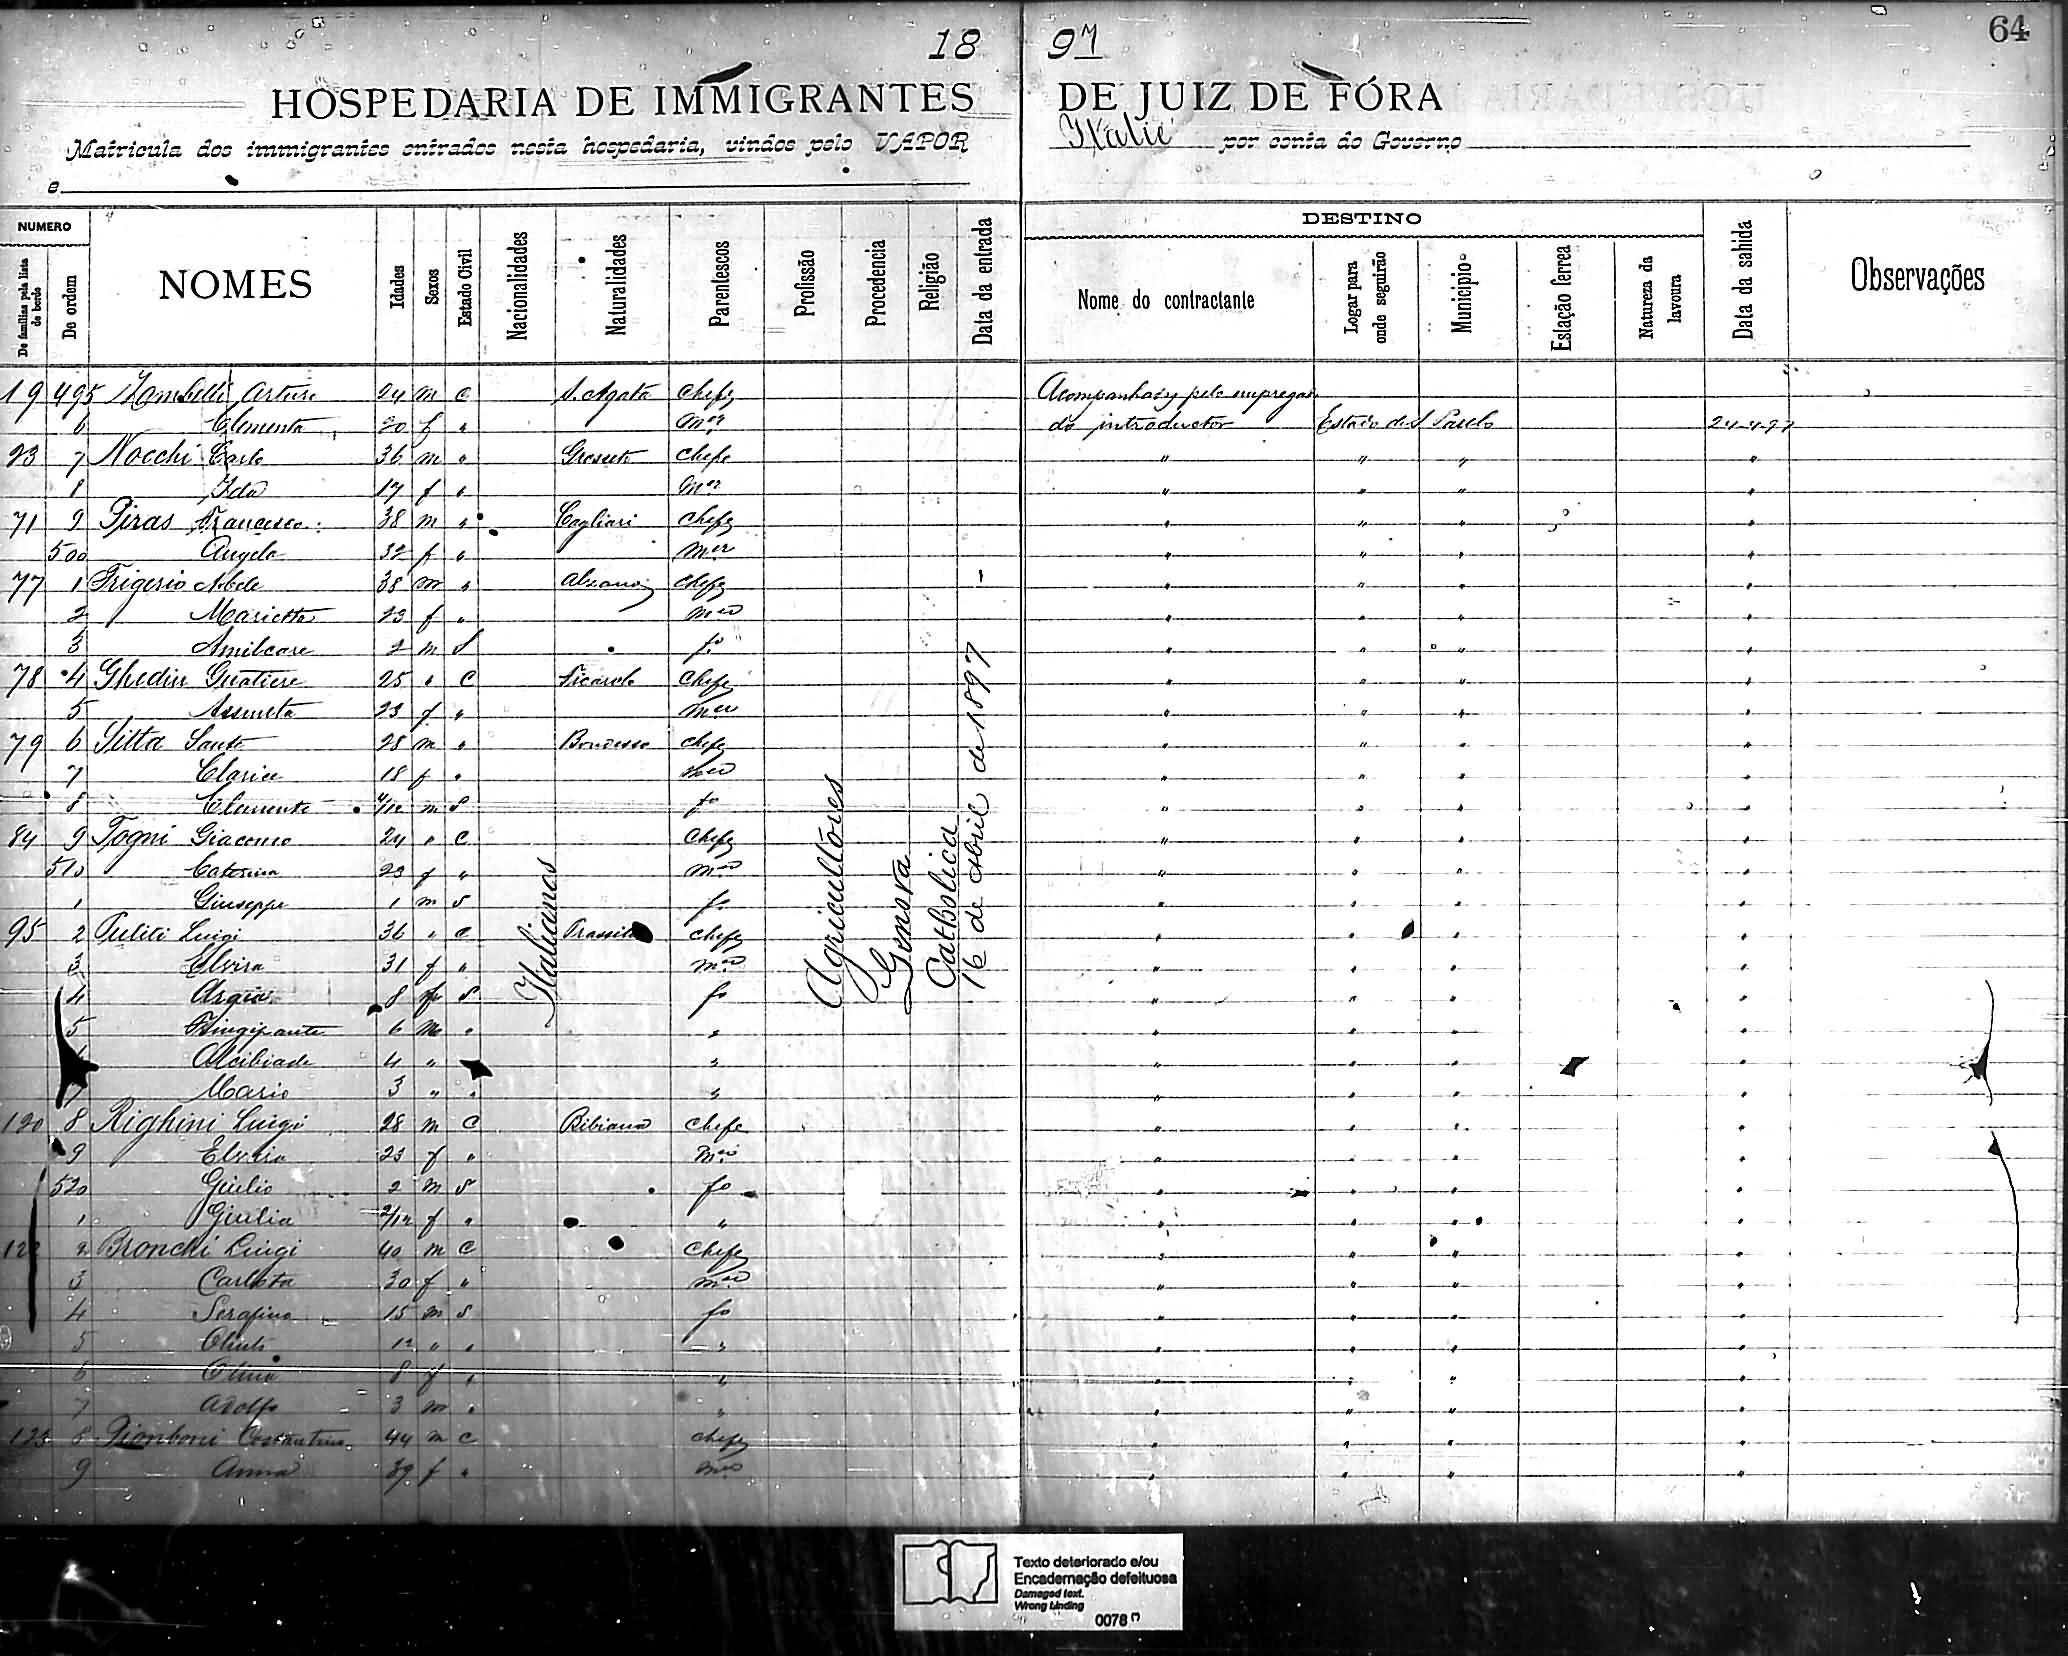 64
18 97
HOSPEDARIA DE IMMIGRANTES DE JUIZ DE FÓRA
Matricula dos immigrantes entrados nesta hospedaria, vindos pelo VAPOR Italie por conta do Governo
e
NUMERO
De familias pela lista de bordo
De ordem
NOMES
Idades
Sexos
Estado Civil
Nacionalidades
Naturalidades
Parentescos
Profissão
Procedencia
Religião
Data da entrada
DESTINO
Nome do contractante
Logar para onde seguirão
Municipio
Estação ferrea
Natureza da lavoura
Data da sahida
Observações
19 495 Zambelli Arturo 24 m C S. Agata Chefe Acompanhados pelo empregado
6 Clementa 20 f " mer do introductor Estado de S Paulo 24-4-97
23 7 Nocchi Carlo 36 m " Grosseto Chefe " " " "
8 Ida 17 f " mer " " " "
71 9 Piras Francesco 38 m " Cagliari Chefe " " " "
500 Angela 32 f " mer " " " "
77 1 Frigerio Abele 38 m " Chefe " " " "
2 Marietta 23 f " mer " " " "
3 Amilcare 2 m S fo " " " "
78 4 Ghedin Guatiere 25 " C Ficarolo Chefe " " " "
5 Assunta 23 f " mer " " " "
79 6 Sitta Santo 28 m " Chefe " " " "
7 Clarice 18 f " mer " " " "
8 Clemente m S fo " " " "
84 9 Togni Giacomo 24 " C Chefe " " " "
510 Caterina 23 f " mer " " " "
1 Giuseppe 1 m S fo " " " "
95 2 Puliti Luigi 36 " C Chefe " " " "
3 Elvira 31 f " mer " " " "
4 Argia 8 S fo " " " "
5 6 m " " " " " "
Alcibiade 4 " " " " " "
7 Mario 3 " " " " " " "
120 8 Righini Luigi 28 m C Bibiana Chefe " " " "
9 Elvira 23 f " mer " " " "
520 Giulio 2 m S fo " " " "
1 Giulia 2/12 f " " " " " "
122 2 Bronchi Luigi 40 m C Chefe " " " "
3 Carlota 30 f " mer " " " "
4 Serafino 15 m S fo " " " "
5 Olinto 12 " " " " " " "
6 8 f " " " " " "
7 Adolfo 3 m " " " " " "
123 8 Pionboni Costantino 44 m C Chefe " " " "
9 Anna 39 f " mer " " " "
Italianos
Agricultôres
Genova
Catholica
16 de Abril de 1897
Texto deteriorado e/ou
Encadernação defeituosa
Damaged text.
Wrong binding
0078